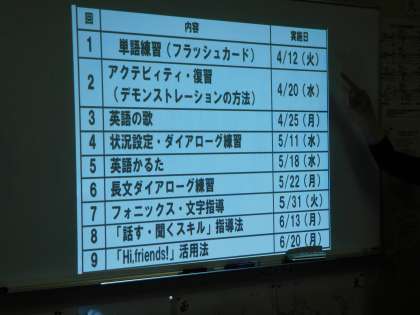 回 内容 実施日
1 単語練習（フラッシュカード） 4/12（火）
2 アクテビィティ・復習
（デモンストレーションの方法） 4/20（水）
3 英語の歌 4/25（月）
4 状況設定・ダイアローグ練習 5/11（水）
5 英語かるた 5/18（水）
6 長文ダイアローグ練習 5/22（月）
7 フォニックス・文字指導 5/31（火）
8 「話す・聞くスキル」指導法 6/13（月）
9 「Hi,friends!」活用法 6/20（月）